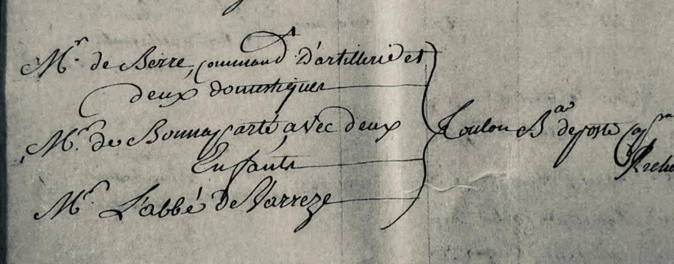 Mr. de Berre, command.t D'artillerie et
deux domestiques
Mr. de Bonnaparte, avec deux
Enfants
Mr. L'abbé de Varreze
Toulon B.au de poste